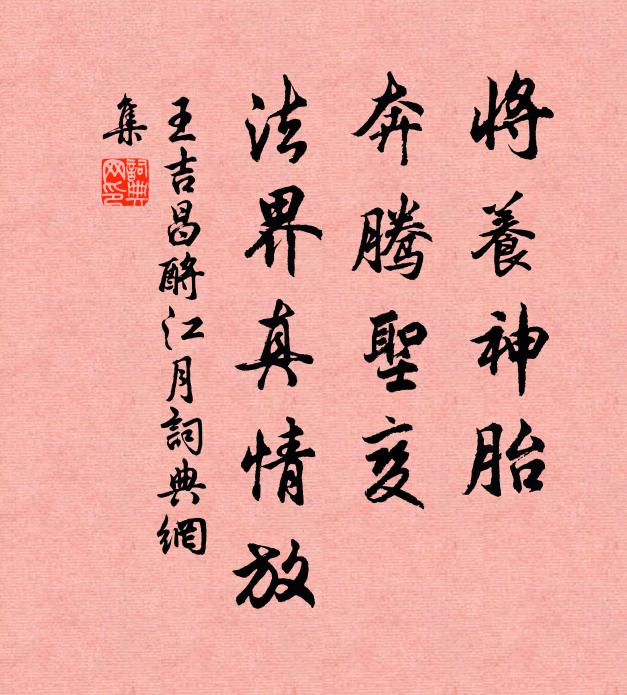 將養神胎
奔騰聖变
法界真情放
王吉昌酹江月詞典網
集
詞典
网印